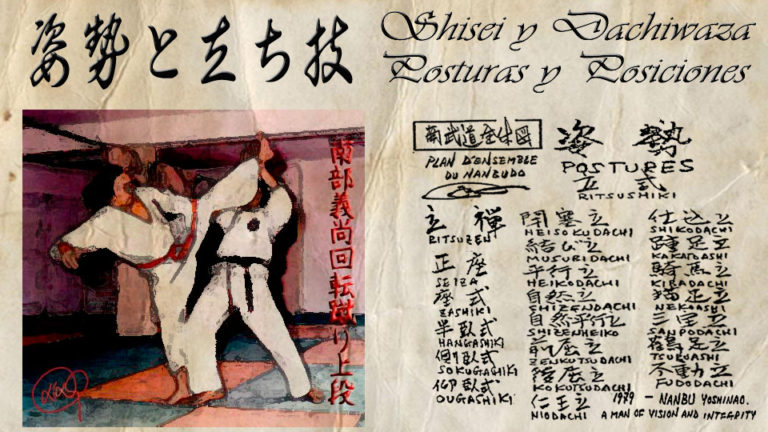 姿勢と立ち技
Shisei y Dachiwaza
Posturas y Posiciones
南部義尚回転蹴り上段
南武道全体図
PLAN D'ENSEMBLE
DU NANBUDO
姿勢
POSTURES
立式
RITSUSHIKI
立禅
RITSUZEN
正座
SEIZA
座式
ZASHIKI
半臥式
HANGASHIKI
側臥式
SOKUGASHIKI
仰臥式
OUGASHIKI
閉塞立
HEISOKUDACHI
結び立
MUSUBIDACHI
平行立
HEIKODACHI
自然立
SHIZENDACHI
自然平行立
SHIZENHEIKO
前屈立
ZENKUTSUDACHI
後屈立
KOKUTSUDACHI
仁王立
NIODACHI
仕込立
SHIKODACHI
踵足立
KAKATOASHI
騎馬立
KIBADACHI
猫足立
NEKOASHI
三里立
SANPODACHI
鶴足立
TSURUASHI
不動立
FUDODACHI
1979 - NANBU YOSHINAO.
A MAN OF VISION AND INTEGRITY